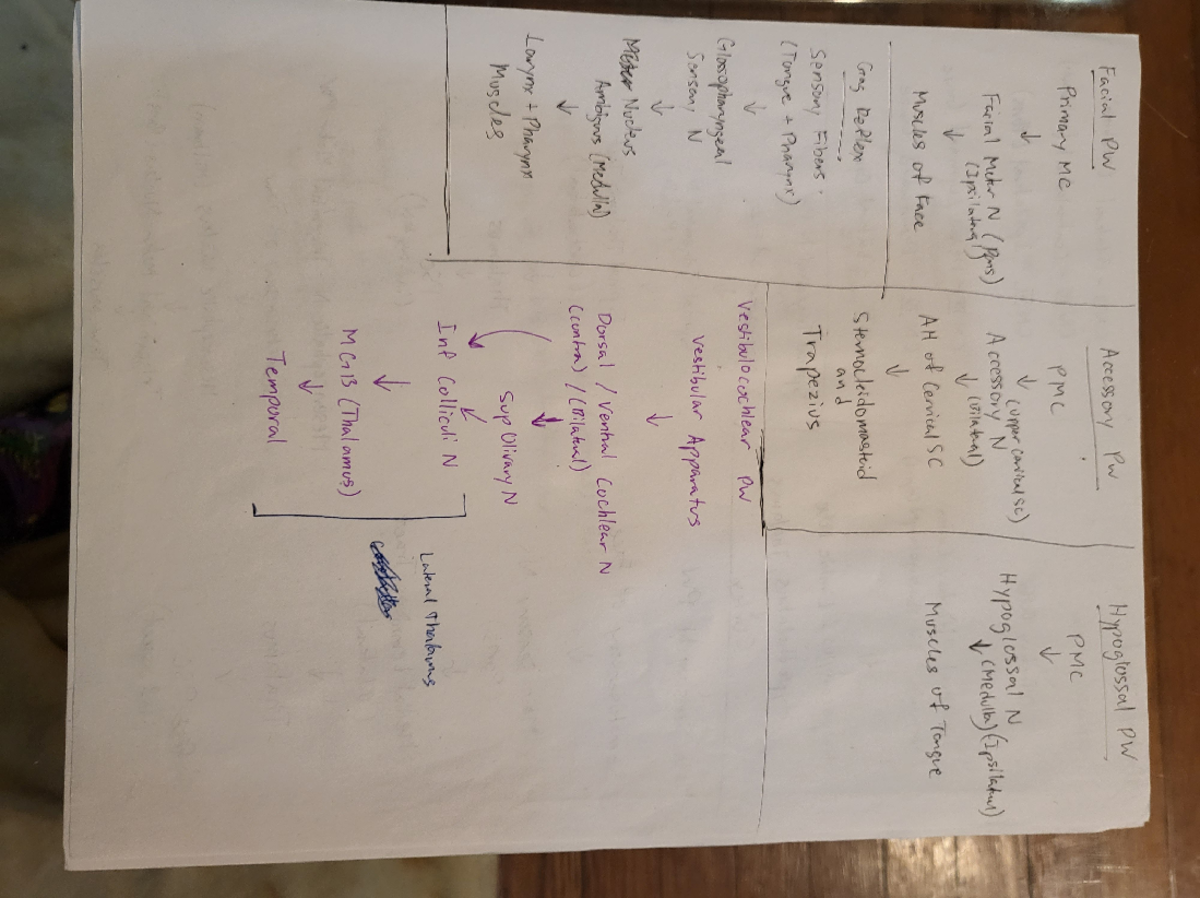 Facial PW
Primary MC
↓
Facial Motor N (Pons)
(Ipsilateral)
↓
Muscles of Face
Gag Reflex
Sensory Fibers
(Tongue + Pharynx)
↓
Glossopharyngeal
Sensory N
↓
Nucleus
Ambigus (Medulla)
↓
Larynx + Pharynx
Muscles
Accessory PW
PMC
↓ (Upper cervical SC)
Accessory N
↓ (Bilateral)
AH of Cervical SC
↓
Sternocleidomastoid
and
Trapezius
Hypoglossal PW
PMC
↓
Hypoglossal N
↓ (Medulla) (Ipsilateral)
Muscles of Tongue
Vestibulocochlear PW
Vestibular Apparatus
↓
Dorsal / Ventral Cochlear N
(contra) / (Bilateral)
↓
Sup Olivary N
↓
Inf Colliculi N
↓
MGB (Thalamus)
↓
Temporal
Lateral Thalamus